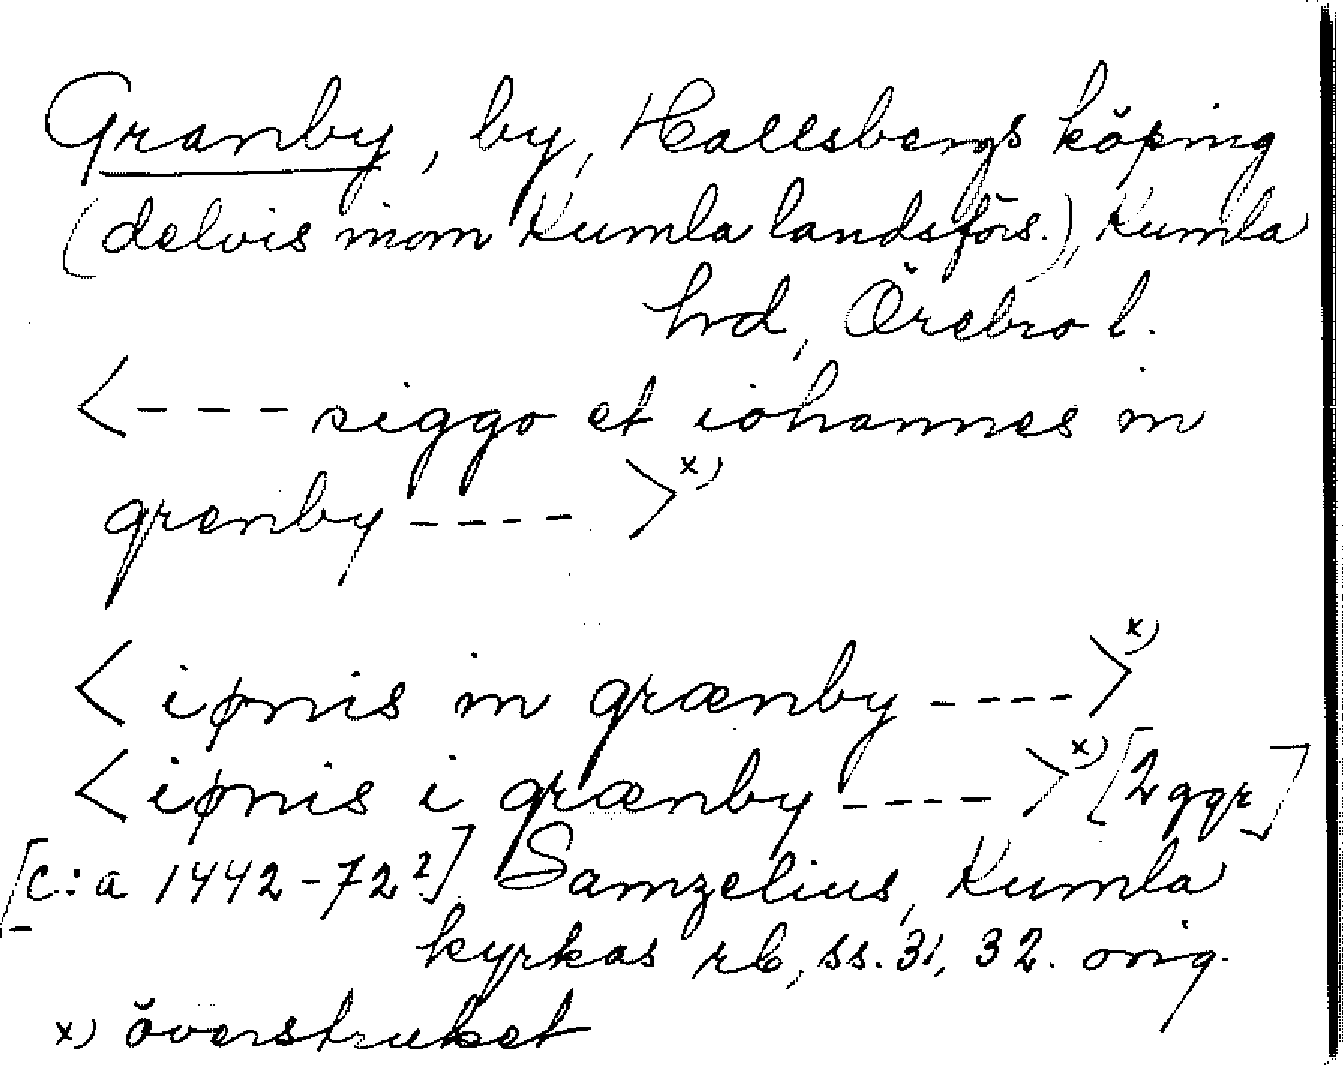 Granby, by, Hallsbergs köping
(delvis inom Kumla landsförs.), Kumla
hd, Örebro l.
<--- siggo et iohannes in
grænby ---- > x)
< ipnis in grænby ---- > x)
< ipnis i grænby ---- > x) [2 ggr]
[c:a 1442-72²] Samzelius, Kumla
kyrkas rb, ss. 31, 32. orig.
x) överstruket